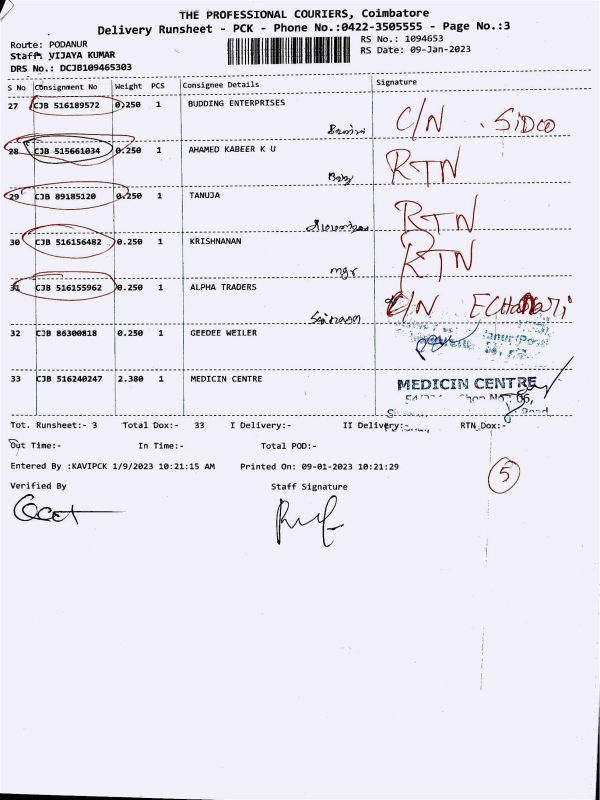 THE PROFESSIONAL COURIERS, Coimbatore
Delivery Runsheet - PCK - Phone No.:0422-3505555 - Page No.:3
Route: PODANUR
RS No.: 1094653
Staff: VIJAYA KUMAR
RS Date: 09-Jan-2023
DRS No.: DCJB109465303
S No Consignment No Weight PCS Consignee Details Signature
27 CJB 516189572 0.250 1 BUDDING ENTERPRISES C/N SIDCO
28 CJB 515661034 0.250 1 AHAMED KABEER K U RTN
29 CJB 89185120 0.250 1 TANUJA RTN
30 CJB 516156482 0.250 1 KRISHNANAN RTN
mgr
31 CJB 516155962 0.250 1 ALPHA TRADERS C/N
32 CJB 86300818 0.250 1 GEEDEE WEILER
33 CJB 516240247 2.380 1 MEDICIN CENTRE MEDICIN CENTRE
Tot. Runsheet:- 3 Total Dox:- 33 I Delivery:- II Delivery:- RTN Dox:-
Out Time:- In Time:- Total POD:-
Entered By :KAVIPCK 1/9/2023 10:21:15 AM Printed On: 09-01-2023 10:21:29
5
Verified By Staff Signature